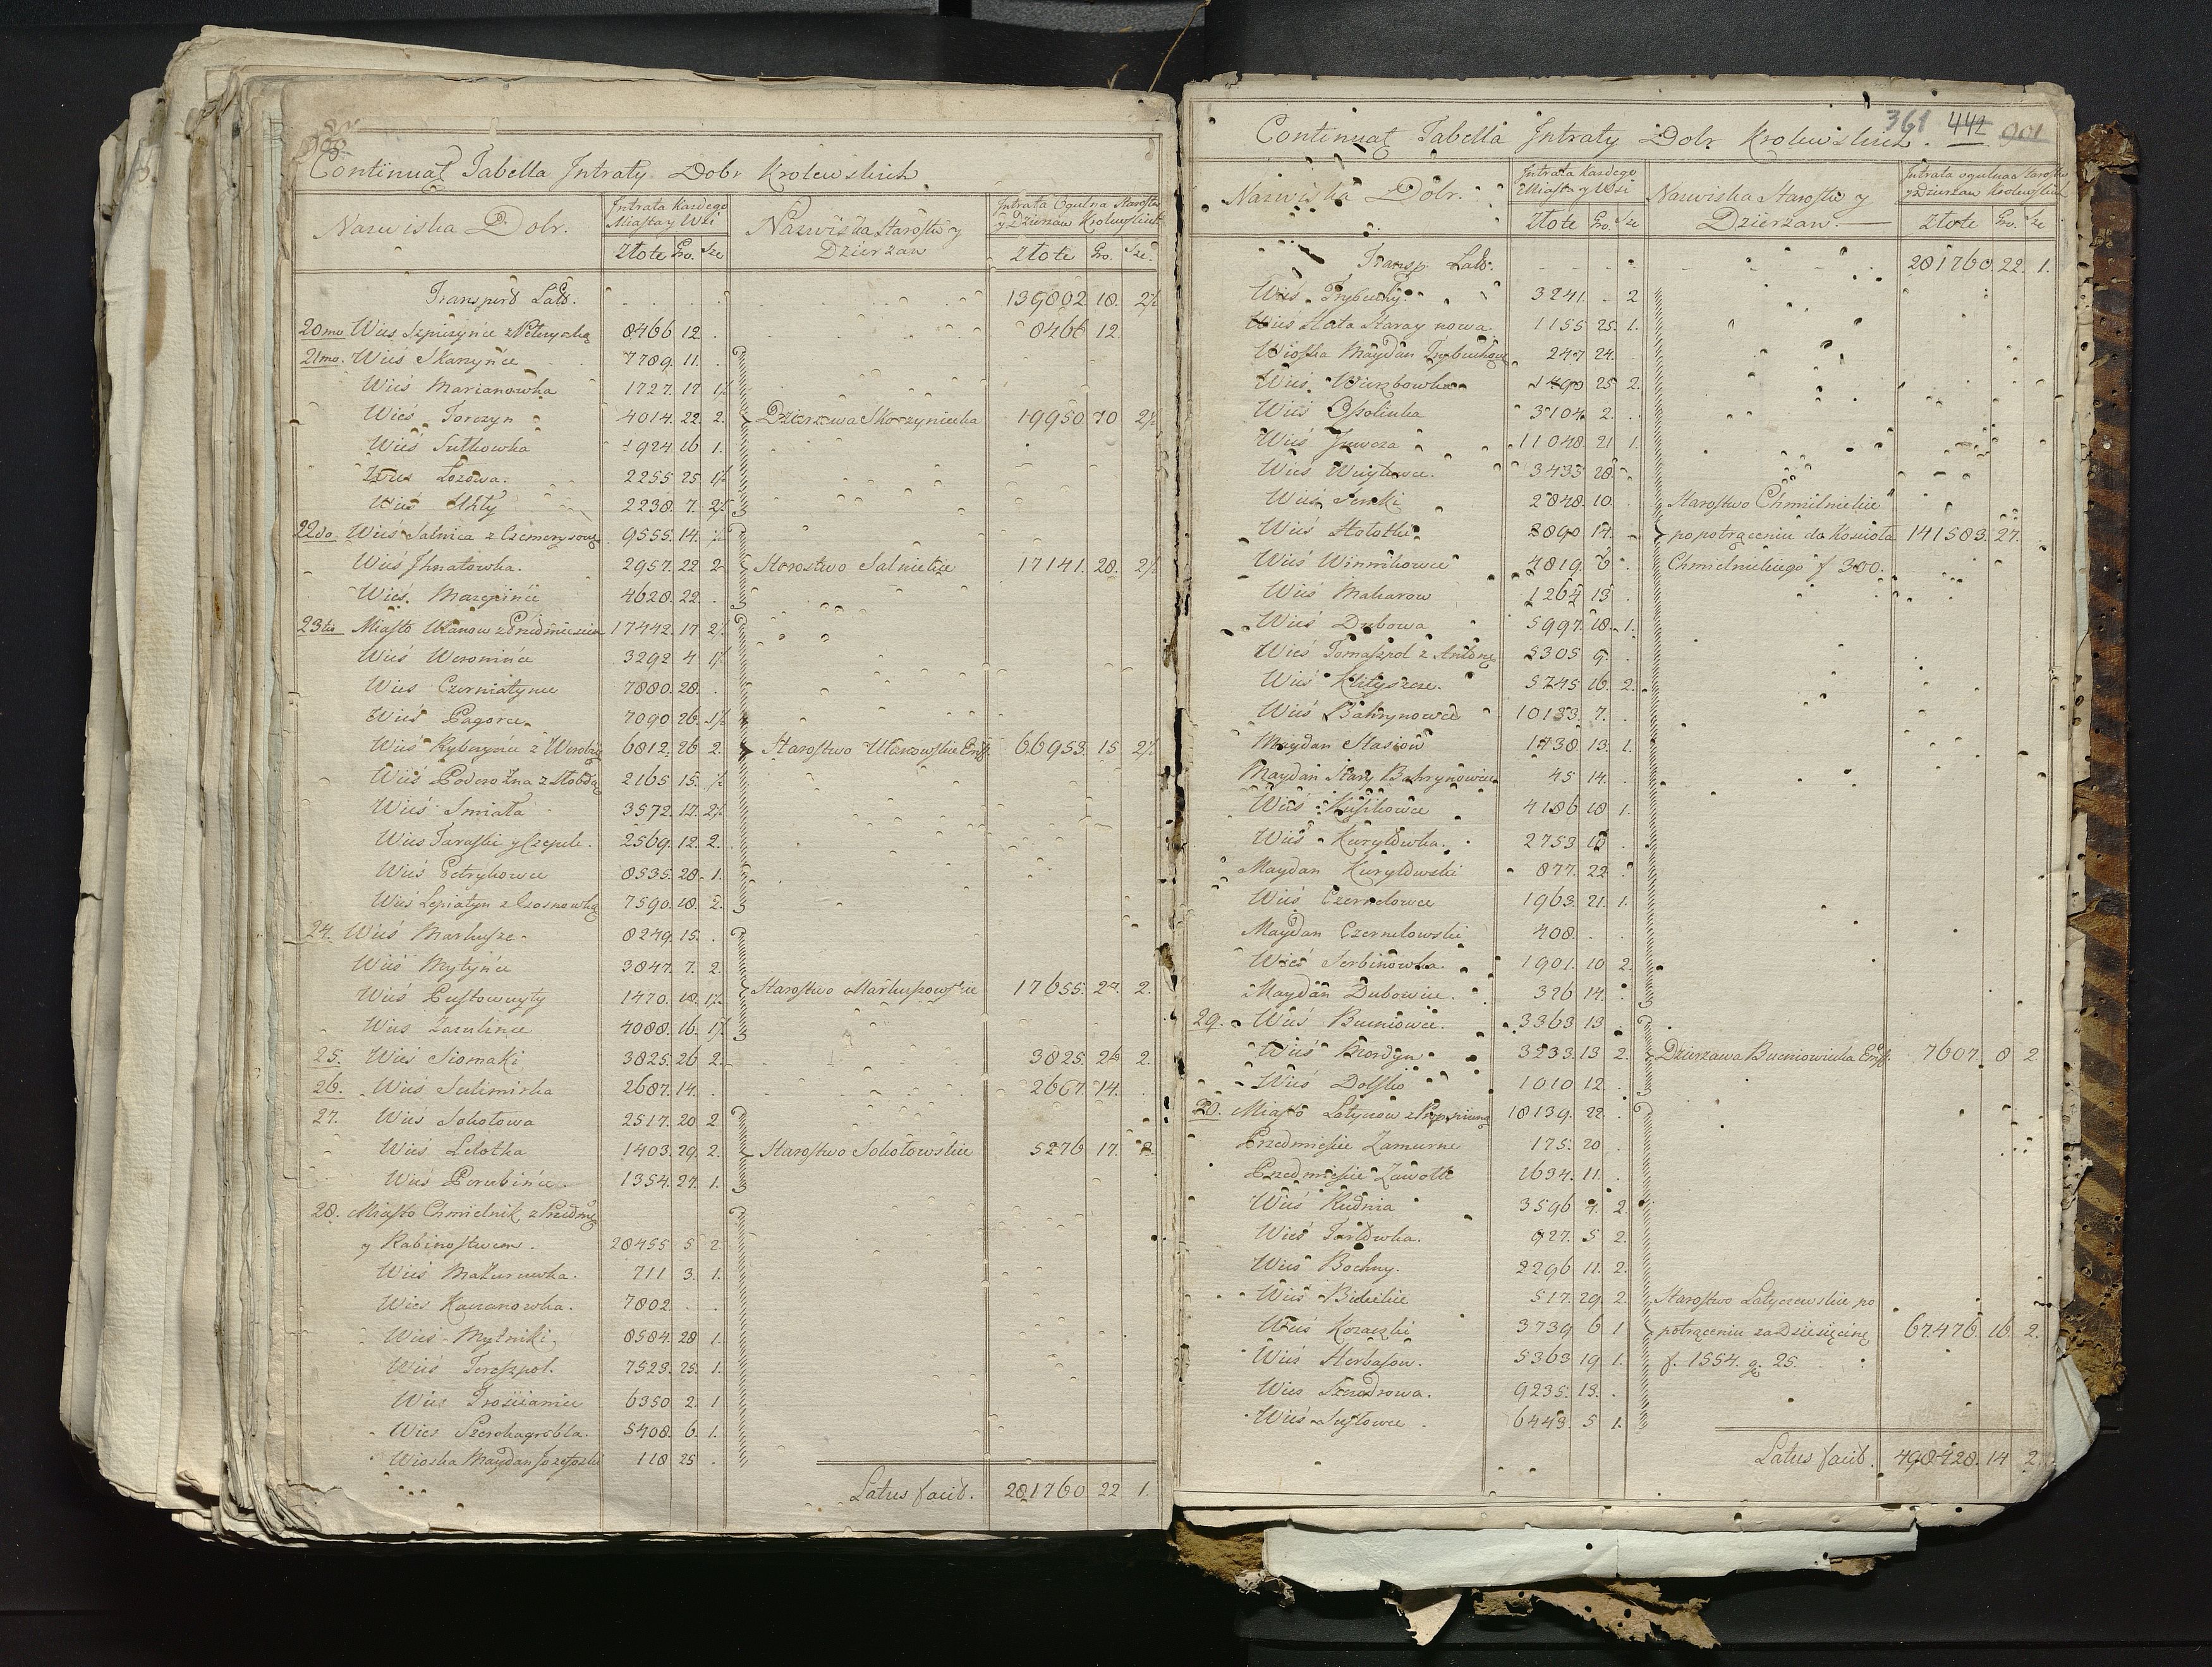 Continuat Tabella Jntraty Dobr Krolewskich
Nazwiska Dobr.
Jntrata Kazdego Miasta y Wsi
Złote Gro. Sze
Nazwiska Starostw y Dzierzaw
Jntrata Ogulna Starostw y Dzierzaw Krolewskich
Złote Gro. Sze.
Transport Lat. 139802 18. 2½
20mo Wieś Szpiczyńce z Petryczką 8466 12. 8466 12.
21mo. Wieś Skarzyńce 7789. 11.
Wieś Marianowka 1727. 17 1½
Wieś Torczyn 4014. 22. 2. Dzierzawa Skarzyniecka 19950. 2½
Wieś Sutkowka 924 16 1.
Wieś Łozowa. 2255 25 1½
Wieś 2238. 7. 2½
22do Wieś Salnica z 9555. 14. ½
Wieś Jhnatowka. 2957. 22 2 Starostwo Salnickie 17141. 28. 2½
Wieś Mazepińce 4628. 22.
23tio Miasto Ułanow z Przedmieściem 17442. 17 2½
Wieś Woronińce 3292 4 1½
Wieś Czerniatynce 7880. 28.
Wieś Pagorce 7090 26. 1½
Wieś Kyberyńce z 6812. 26 2. Starostwo Ułanowskie Emf. 66953. 15 2½
Wieś Podorożna z Słobodą 2165 15. ½
Wieś Smiała 3572. 17. 2½
Wieś Taraski y Czepele. 2569. 12. 2.
Wieś Petrykowce 8535. 28. 1.
Wieś Lepiatyn z Czosnowką 7590. 18. 2.
24. Wieś Markusze 8249. 15.
Wieś Mytyńce 3847. 7. 2.
Wieś Pustowoyty 1470. 18. 1½ Starostwo Markuszowskie 17655. 27. 2.
Wieś Zazulince 4088. 16. 1½
25. Wieś Siomaki 3825. 26 2. 3825. 26 2.
26. Wieś Sulimirka 2687. 14. 2687. 14.
27. Wieś Sokołowa 2517. 20 2
Wieś Lelotka 1403. 29. 2. Starostwo Sokołowskie 5276 17. 2.
Wieś Porubińce. 1354. 27. 1.
28. Miasto Chmielnik z Przedmię
y Rabinostwem. 28455 5 2
Wieś Mazurowka. 711 3. 1.
Wieś Kaczanowka. 7802.
Wieś Mytniki 8584. 28 1.
Wieś Tereszpol. 7523. 25. 1.
Wieś Trościaniec 6350 2. 1
Wieś Szerokagrobla. 5408. 6. 1.
Wioska Maydan Jozefoski 118 25
Latus facit. 281760 22 1.
361 442 901
Continuat Tabella Jntraty Dobr Krolewskich.
Nazwiska Dobr.
Jntrata Kazdego Miasta y Wsi
Złote Gro. Sze
Nazwiska Starostw y Dzierzaw.
Jntrata ogulna Starostw y Dzierzaw Krolewskich
Złote Gro. Sze
Transp. Lat. 281760. 22. 1.
Wieś Trybuchy. 3241. 2
Wieś Stara y nowa. 1155 25. 1.
Wioska Maydan Trybuchow 247 24.
Wieś Wierzbowka 1490 25 2.
Wieś Osolinka 3704. 2.
Wieś Jwcza 11048. 21 1.
Wieś Woytowce. 3433 28.
Wieś Senki 2848. 10. Starostwo Chmielnickie
Wieś Hołotki 3890 14. po potrąceniu do Koscioła 141583. 27.
Wieś Winnikowce 4819. 6. Chmielnickiego f 300.
Wieś Makarow 1264 13
Wieś Dubowa 5997. 18. 1.
Wieś Tomaszpol z Antonę 5305 9.
Wieś Klityszcze. 5745 16. 2.
Wieś Bahrynowce 10133. 7.
Maydan Stasiow 1730. 13. 1.
Maydan Stary Bahrynowiec 45 14.
Wieś Kusikowce 4186 18 1.
Wieś Kuryłowka. 2753 18
Maydan Kuryłowski 877. 22.
Wieś Czernelowce 1963. 21. 1.
Maydan Czernelowski 408.
Wieś Serbinowka. 1901. 10 2.
Maydan Dubowiec. 326 14.
29. Wieś Bucniowce. 3363 13
Wieś Mordyn 3233. 13 2. Dzierzawa Bucniowiecka Emf. 7607. 8 2.
Wieś Dolsko 1010 12
30. Miasto Latyczow z 18139. 22
Przedmieście Zamurne 175. 20
Przedmieście Zawołk 1634. 11.
Wieś Rudnia 3596 7. 2.
Wieś Tarłowka. 927. 5 2.
Wieś Bochny. 2296 11. 2.
Wieś 517. 29. 2. Starostwo Latyczewskie po
Wieś Kozaczki 3739 6 1 potrąceniu za Dziesięcinę 67476. 16. 2.
Wieś Herbasow. 5363 19 1. f. 1554. g. 25.
Wieś Szczodrowa. 9235. 13.
Wieś Susłowce 6443. 5 1.
Latus facit. 498428. 14 2.